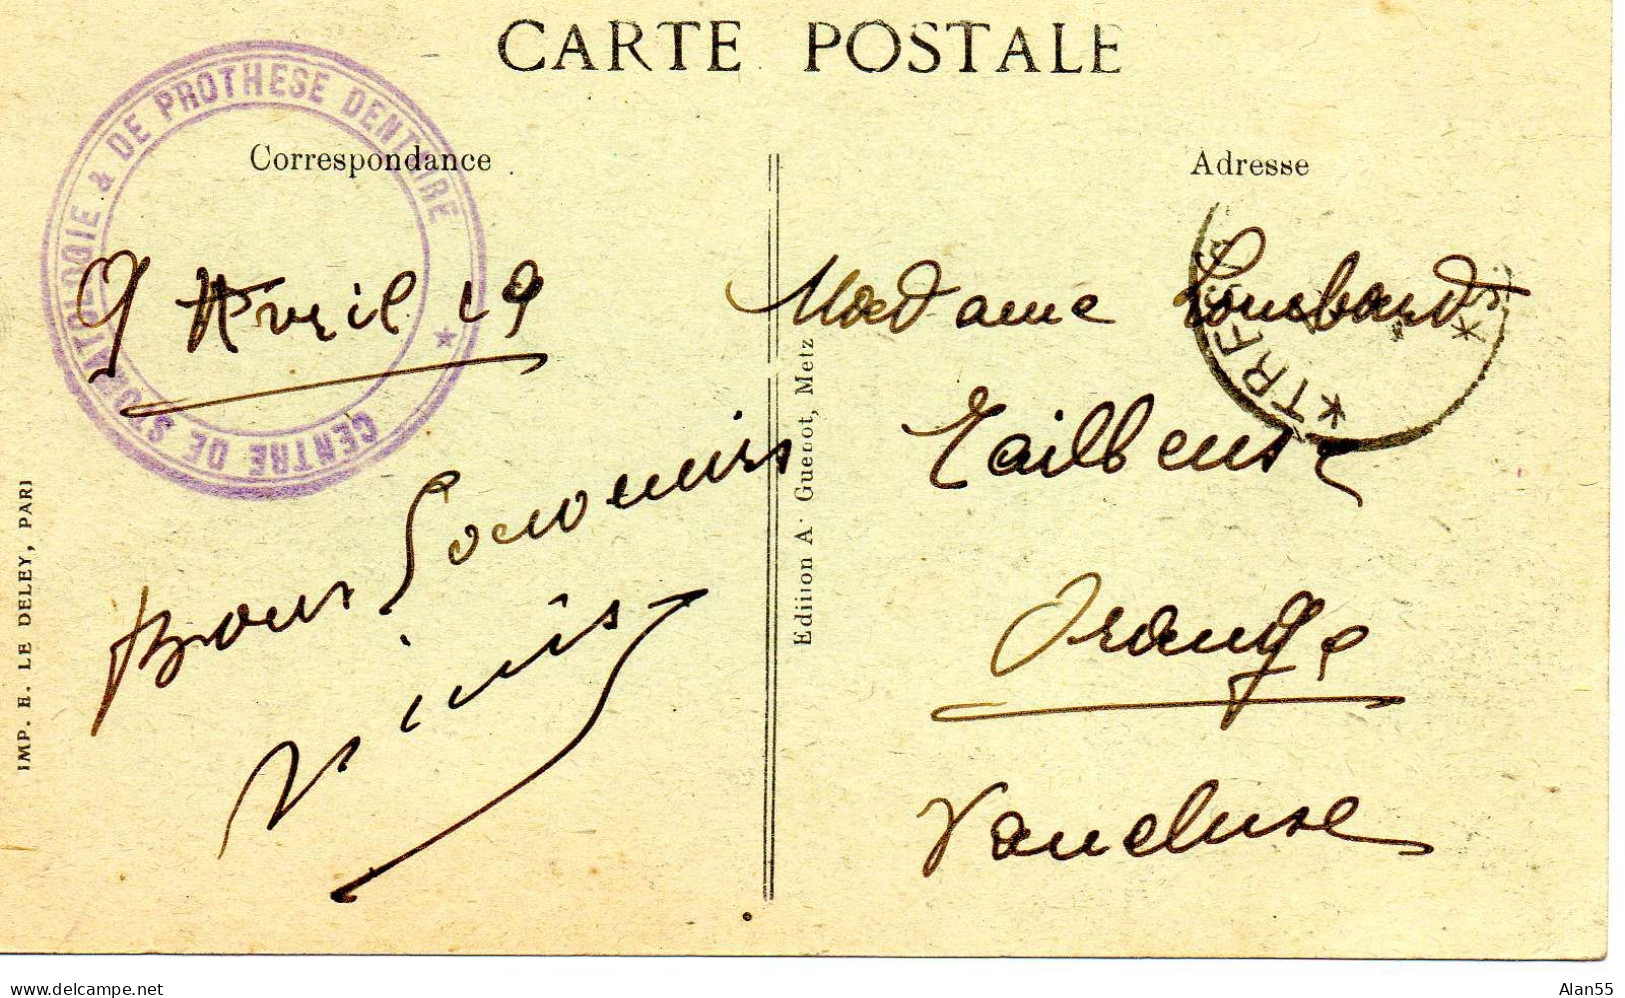 CARTE POSTALE
CENTRE DE STOMATOLOGIE & DE PROTHESE DENTAIRE *
Correspondance
Adresse
9 Avril 19
Bons Souvenirs
Madame Lombard
Tailleuse
Orange
Vaucluse
* TRE
IMP. E. LE DELEY, PARI
Edition A. Guebot, Metz
www.delcampe.net
Alan55